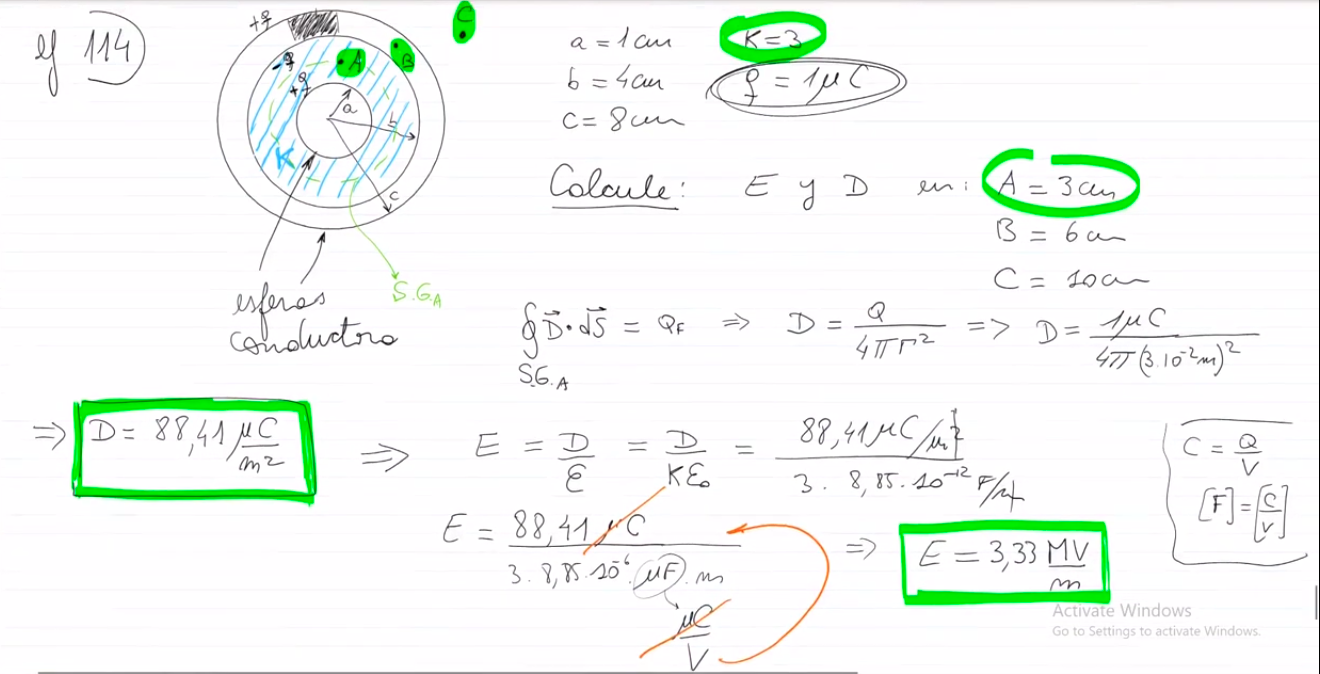 ej 114
+q
-q
+q
A
B
C
a
b
c
K
S.G.A
esferas
conductora
a = 1 cm
b = 4 cm
c = 8 cm
K = 3
q = 1 μC
Calcule: E y D en: A = 3 cm
B = 6 cm
C = 10 cm
∮ D⃗ • dS⃗ = Q_F ⇒ D = Q / 4πr² => D = 1 μC / 4π(3.10⁻² m)²
S.G.A
⇒ D = 88,41 μC/m² ⇒ E = D/ε = D/Kε₀ = 88,41 μC/m² / 3 . 8,85 . 10⁻¹² F/m
C = Q/V
[F] = [C/V]
E = 88,41 μC / 3 . 8,85 . 10⁻⁶ . μF . m ⇒ E = 3,33 MV/m
μC/V
Activate Windows
Go to Settings to activate Windows.